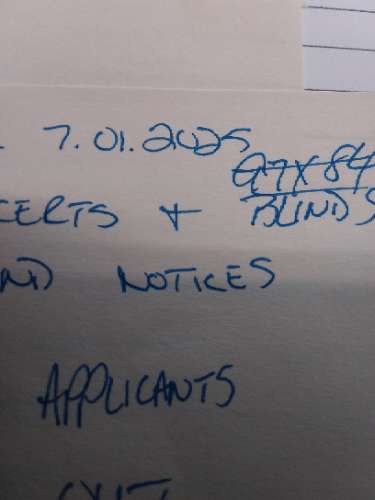 7.01.2025
97x84
CERTS + BLINDS
ND NOTICES
APPLICANTS